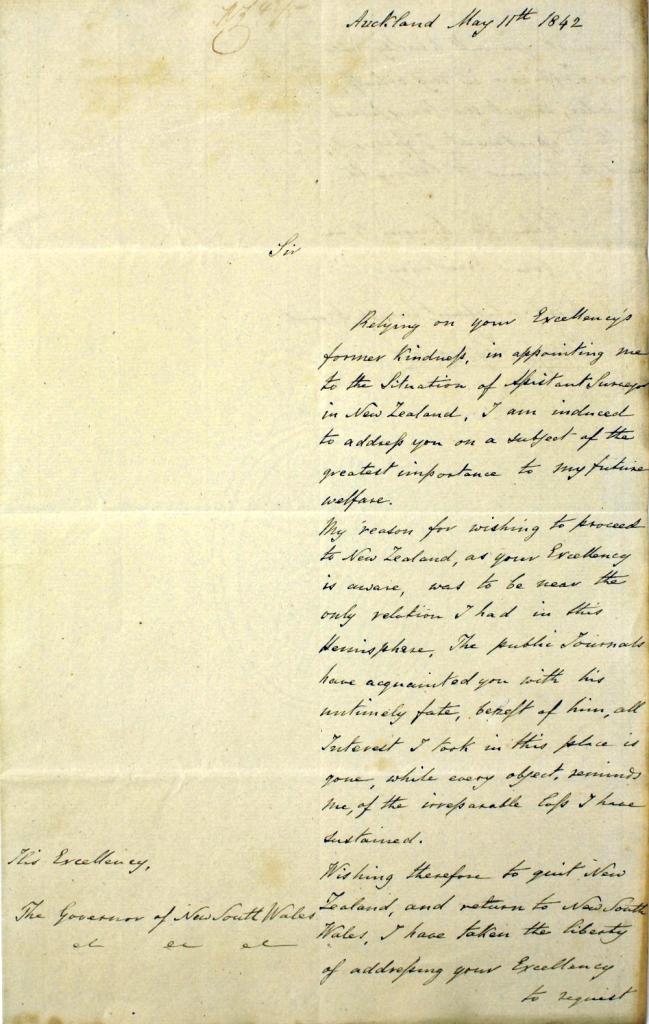 Auckland May 11th 1842
Sir
Relying on your Excellency's
former Kindness, in appointing me
to the Situation of Assistant Surveyor
in New Zealand, I am induced
to address you on a subject of the
greatest importance to my future
welfare.
My reason for wishing to proceed
to New Zealand, as your Excellency
is aware, was to be near the
only relation I had in this
Hemisphere, The public Journals
have acquainted you with his
untimely fate, bereft of him, all
Interest I took in this place is
gone, while every object, reminds
me, of the irreparable loss I have
sustained.
Wishing therefore to quit New
Zealand, and return to New South
Wales, I have taken the liberty
of addressing your Excellency
to request
His Excellency,
The Governor of New South Wales